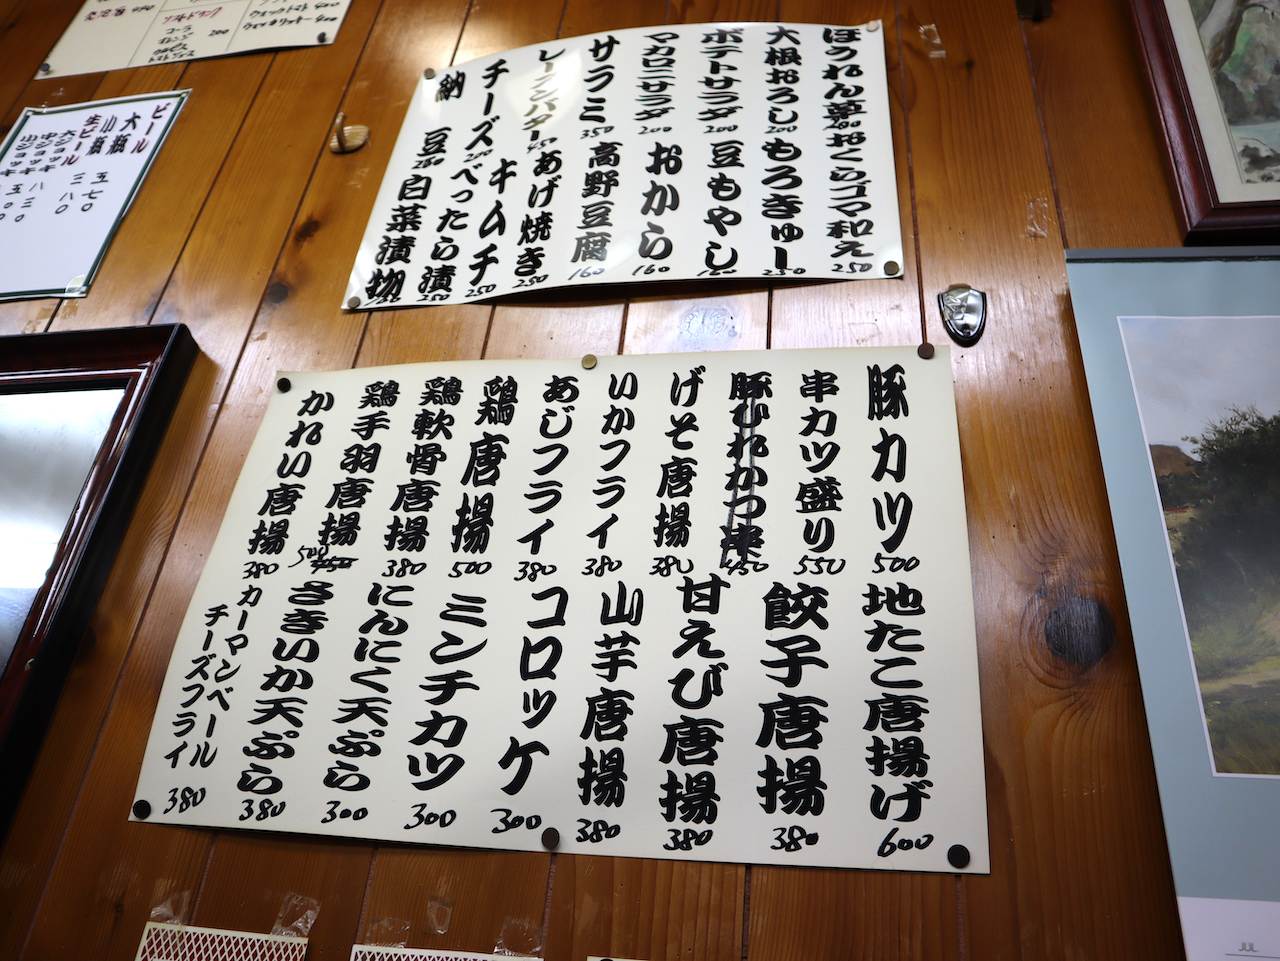 ソフトドリンク
コーラ
オレンジ
トマトジュース
200
ウォッカトマト 400
ウォッカリッキー 400
ビール
大瓶
小瓶
生ビール
大ジョッキ
中ジョッキ
小ジョッキ
ほうれん草
大根おろし 200
ポテトサラダ 200
マカロニサラダ 200
サラミ 350
レーズンバター 450
チーズ 200
納豆 200
おくらゴマ和え 250
もろきゅー 250
豆もやし 160
おから 160
高野豆腐 160
あげ焼き 250
キムチ 250
べったら漬 250
白菜漬物
豚カツ 500
串カツ盛り 550
豚ひれかつ串 450
げそ唐揚 380
いかフライ 380
あじフライ 380
鶏唐揚 500
鶏軟骨唐揚 380
鶏手羽唐揚 500
かれい唐揚 380
地たこ唐揚げ 600
餃子唐揚 380
甘えび唐揚 380
山芋唐揚 380
コロッケ 300
ミンチカツ 300
にんにく天ぷら 300
さきいか天ぷら 380
カーマンベール
チーズフライ 380